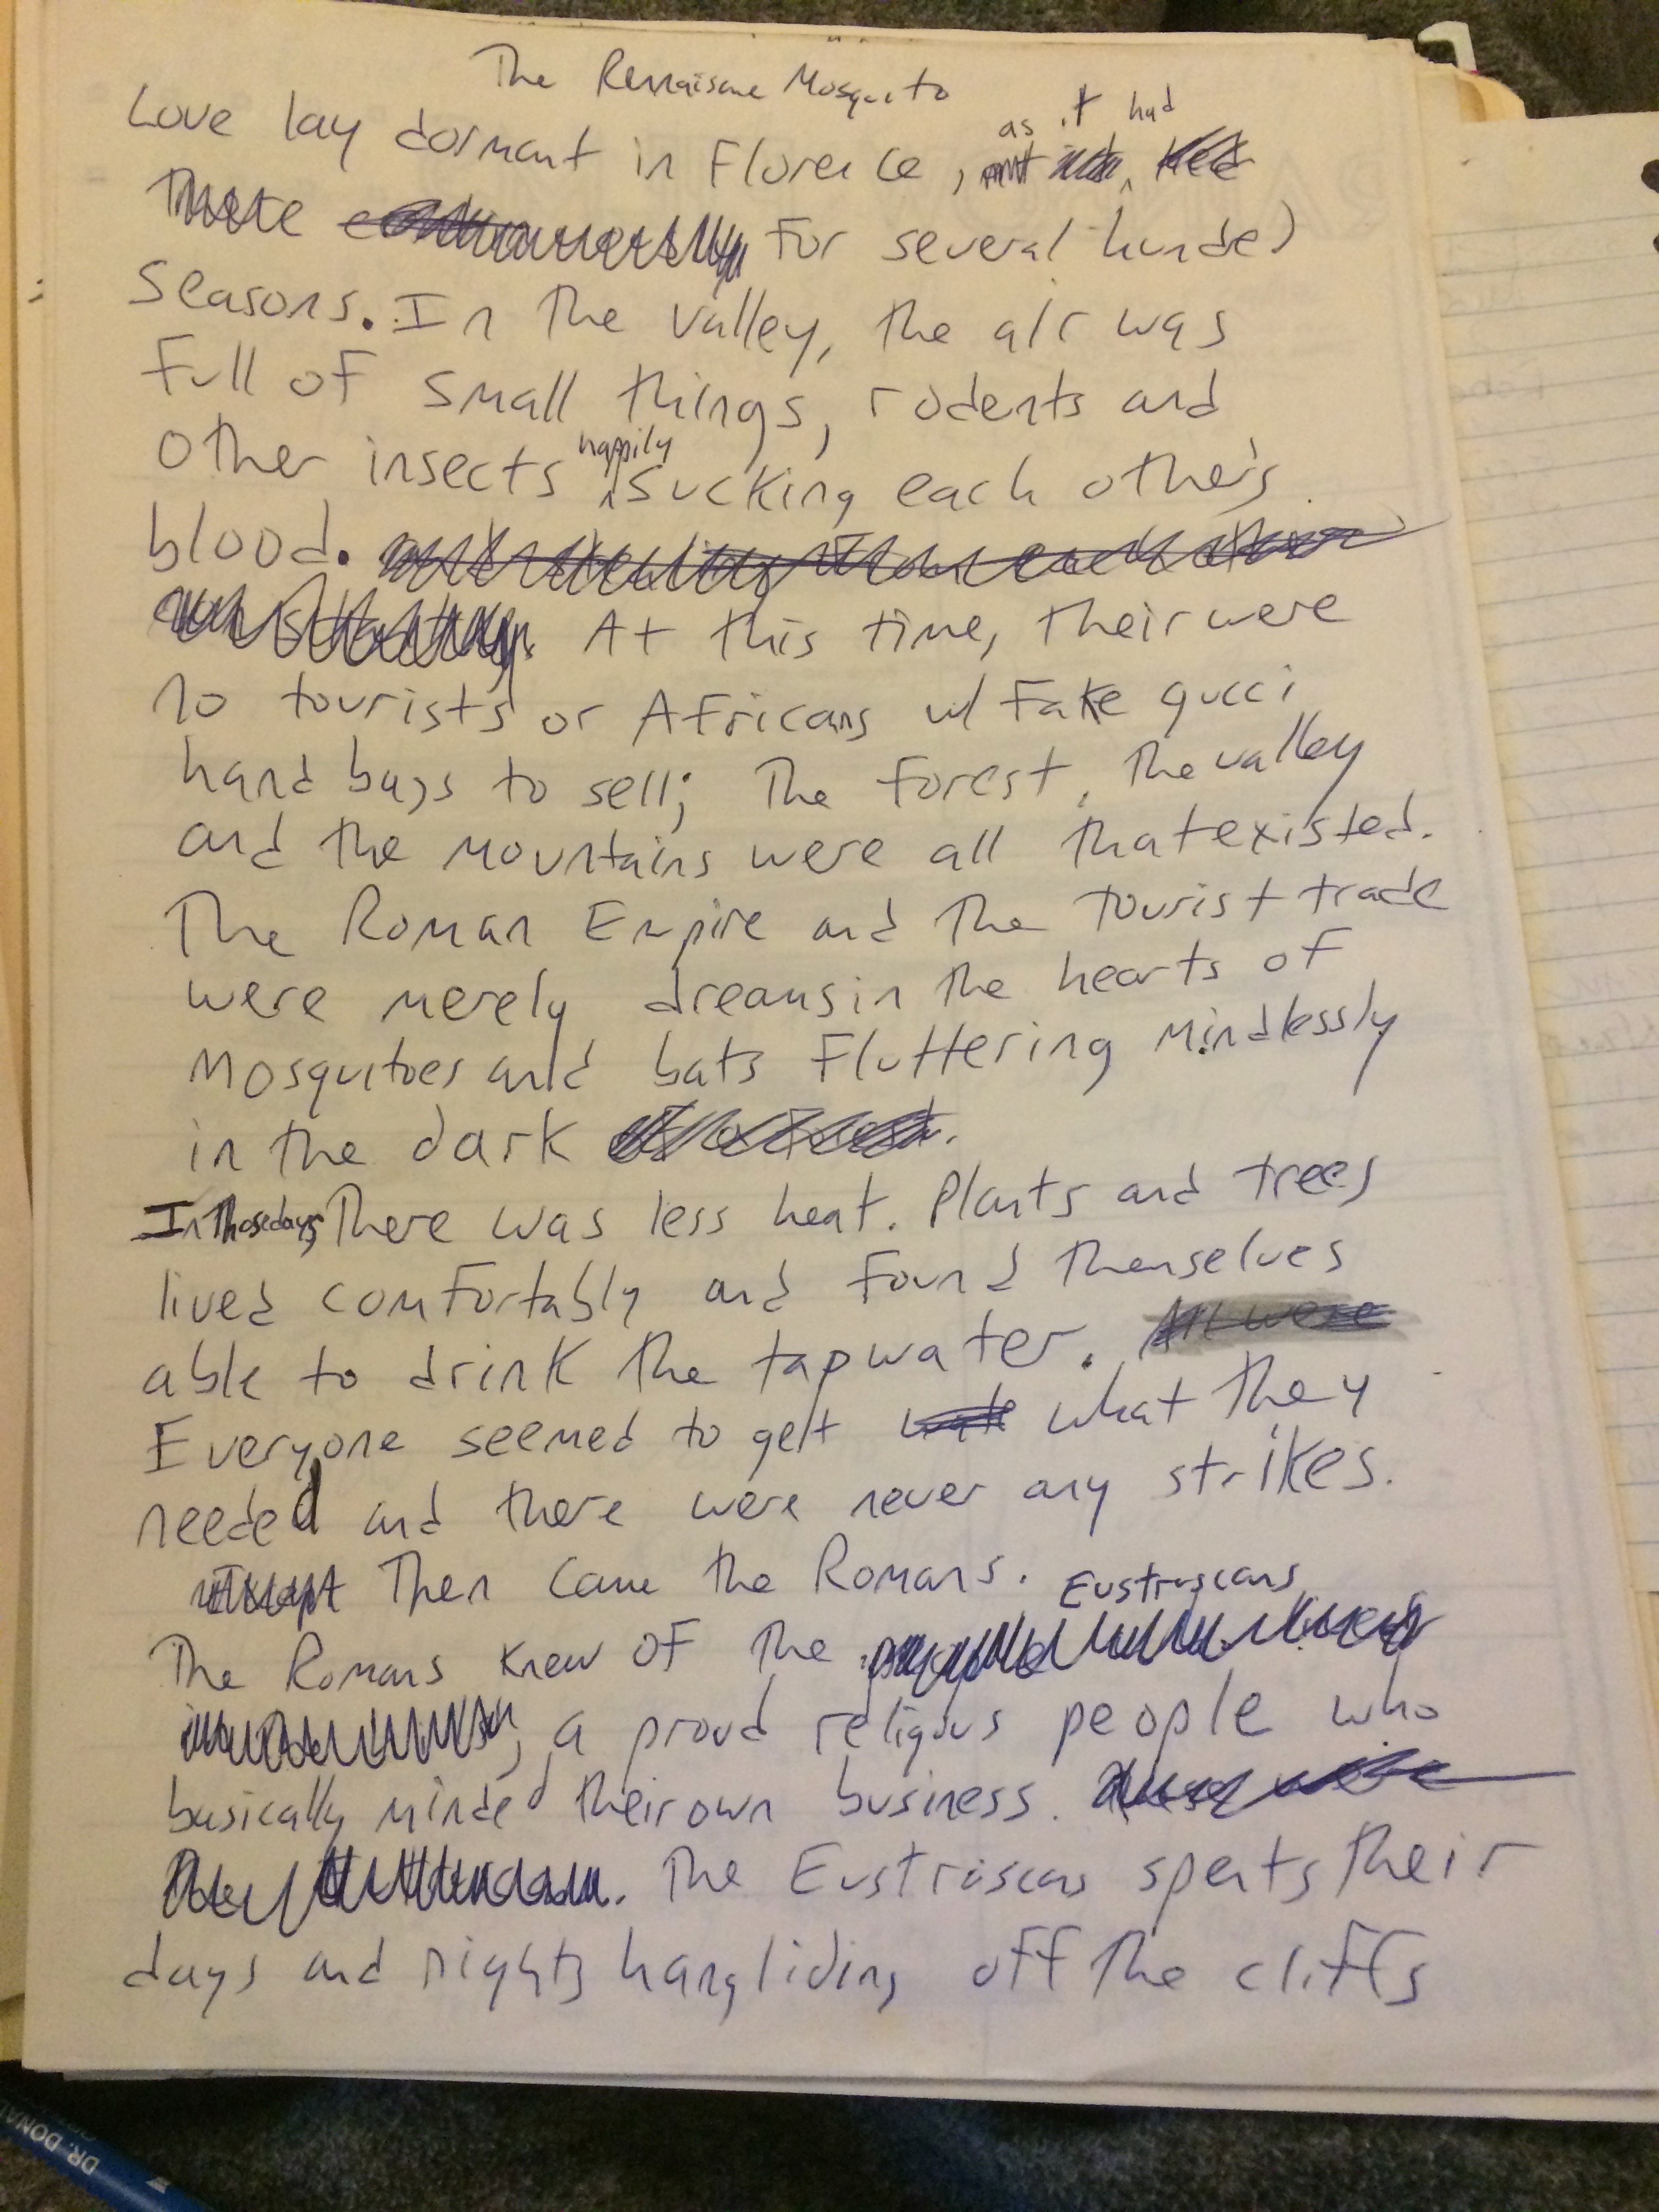 The Rennaisane Mosquito
Love lay dormant in Florence, as it had
for several hunded
seasons. In the valley, the air was
full of small things, rodents and
other insects happily sucking each other's
blood.
At this time, their were
no tourists or Africans w/ fake gucci
hand bags to sell; The forest, the valley
and the mountains were all that existed.
The Roman Empire and the tourist trade
were merely dreams in the hearts of
mosquitoes and bats fluttering mindlessly
in the dark
In those days, There was less heat. Plants and trees
lived comfortably and found themselves
able to drink the tap water. All were
Everyone seemed to gett what they
needed and there were never any strikes.
Then came the Romans.
The Romans knew of the Eustruscans
, a proud religious people who
basically minded their own business.
The Eustruscans spents their
days and nights hangliding off the cliffs
DR. DONAL